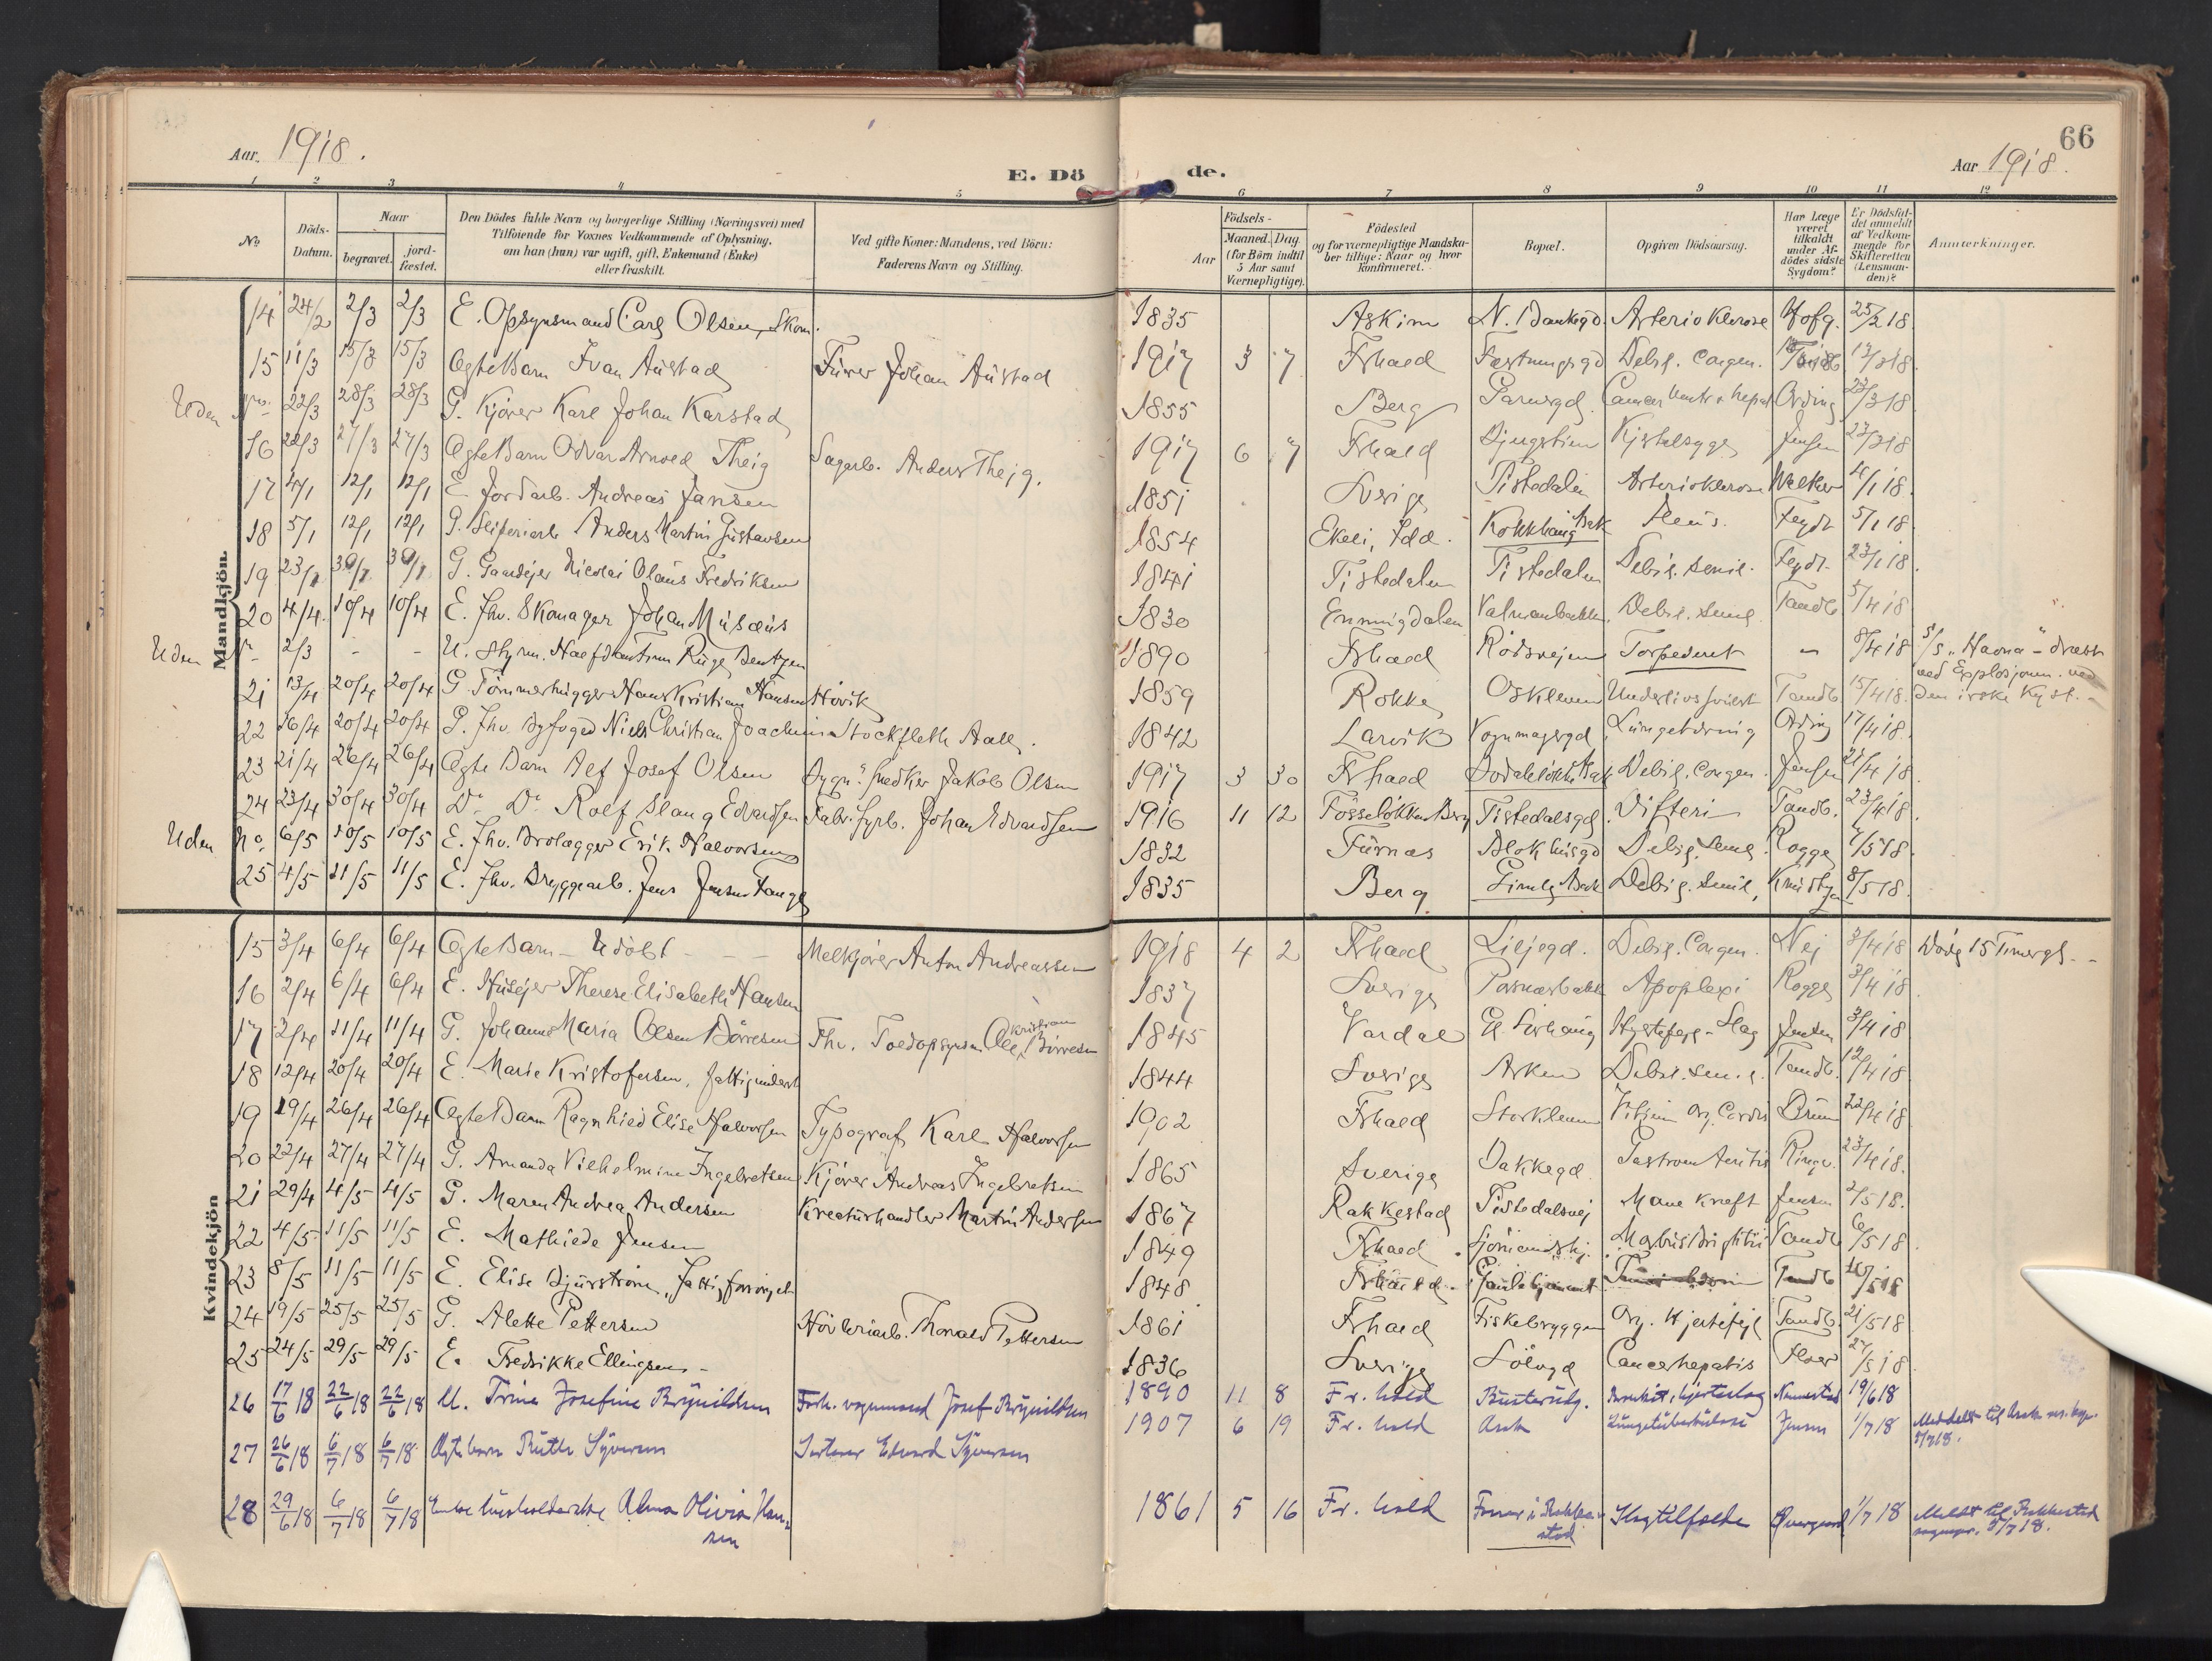 66
Aar. 1918.
E. Dö de.
Aar 1918.
1 2 3 4 5 6 7 8 9 10 11 12
No
Döds-Datum.
Naar
begravet. jordfæstet.
Den Dödes fulde Navn og borgerlige Stilling (Næringsvei) med
Tilföiende for Voxnes Vedkommende af Oplysning,
om han (hun) var ugift, gift, Enkemand (Enke)
eller fraskilt.
Ved gifte Koner: Mandens, ved Börn:
Faderens Navn og Stilling.
Födsels-
Aar Maaned. Dag.
(for Börn indtil
5 Aar samt
Værnepligtige).
Födested
og for værnepligtige Mandskaber tillige: Naar og hvor
konfirmeret.
Bopæl.
Opgiven Dödsaarsag.
Har Læge
været
tilkaldt
under Afdödes sidste
Sygdom?
Er Dödsfaldet anmeldt
af Vedkommende for
Skifteretten
(Lensmanden)?
Anmerkninger.
Mandkjön.
14 24/2 2/3 2/3 E. Opsynsmand Carl Olsen, Skom. 1835 Askim N. Bankegd. Arterioklerose Hofg. 25/2 18.
15 11/3 15/3 15/3 Ægte Barn Ivan Austad Furer Johan Austad 1917 3 7 Frhald Fæstningsgd Debil. congen. 12/3 18
Uden No. 22/3 28/3 28/3 G. Kjører Karl Johan Karstad 1855 Berg Cancer Ording 23/3 18
16 22/3 27/3 27/3 Ægte Barn Odvar Arnold Theig Sagarb. Anders Theig. 1917 6 7 Frhald Kjertelsyge Jensen 23/3 18
17 4/1 12/1 12/1 E. Jordarb. Andreas Jansen 1851 Sverige Tistedalen Arterioklerose Walker 4/1 18.
18 5/1 12/1 12/1 G. Sliperiarb. Anders Martin Gustavsen 1854 Ekeli, Idd. Kokkhaug Ask Feydt 5/1 18
19 23/1 30/1 30/1 G. Gaardejer Nicolai Olaus Fredriksen 1841 Tistedalen Tistedalen Debil. senil. Feydt. 23/1 18.
20 4/4. 10/4 10/4 E. Fhv. Skomager Johan Musæus 1830 Enningdalen Debil. senil. Tandb. 5/4 18
Uden No 2/3 - - U. Styrm. Bentzen 1890 Frhald Rödsvejen Torpederet - 8/4 18 S/S "Havna" - dræbt
ved Explosjonen ved
den irske Kyst. -
21 13/4 20/4 20/4 G. Tömmerhugger Hans Kristian Hansen Hövik 1859 Rokke Oskleven Underlivssvulst Tandb. 15/4 18.
22 16/4 20/4 20/4 G. Fhv. Byfoged Niels Christian Joachim Stockfleth Aall. 1842 Larvik Vognmagergd Lungetæring Ording 17/4 18.
23 21/4 26/4 26/4 Ægte Barn Alf Josef Olsen Snedker Jakob Olsen 1917 3 30 Frhald Debil. congen. Jensen 21/4 18
24 23/4 30/4 30/4 Do Do Rolf Slang Edvardsen Johan Edvardsen 1916 11 12 Fosselökken Berg Tistedalsgd. Difteri Tandb. 23/4 18.
Uden No. 6/5 10/5 10/5 E. Fhv. Brolægger Erik Halvorsen 1832 Furnæs Blokhusgd Debil. senil Rogge 7/5 18.
25 4/5 11/5 11/5 E. Fhv. Bryggearb. Jens Jensen Fange 1835 Berg Debil. senil, 8/5 18.
Kvindekjön
15 3/4 6/4 6/4 Ægte Barn - Udöbt - - - Melkjører Anton Andreassen 1918 4 2 Frhald Liljegd. Debil. Congen. Nej 3/4 18 Döde 15 Timergl. -
16 2/4 6/4 6/4 E. Husejer Therese Elisabeth Hansen 1837 Sverige Apoplexi Rogge 3/4 18
17 2/4 11/4 11/4 G. Johanne Maria Olsen Börresen Fhv. Toldopsynsm. Ole Kristian Börresen 1845 Vardal Hjertefejl - Slag Jensen 3/4 18
18 12/4 20/4 20/4 E. Marie Kristofersen, fattigunderst 1844 Sverige Asken Debil. senil. Tandb. 12/4 18
19 19/4 26/4 26/4 Ægte Barn Ragnhild Elise Halvorsen Typograf Karl Halvorsen 1902 Frhald Storkleven Vitium Org. Cordis Bruun 22/4 18
20 22/4 27/4 27/4 G. Amanda Vilhelmine Ingebretsen Kjører Andreas Ingebretsen 1865 Sverige Bakkegd 23/4 18.
21 29/4 4/5 4/5 G. Maren Andrea Andersen Kreaturhandler Martin Andersen 1867 Rakkestad Tistedalsvej Mavekreft Jensen 2/5 18.
22 4/5 11/5 11/5 E. Mathilde Jensen 1849 Frhald Morbus Brightii Tandb 6/5 18
23 8/5 11/5 11/5 E. Elise Bjurström, Fattigforsörget 1848 Frhald. Gamlehjemmet Tandb 10/5 18
24 19/5 25/5 25/5 G. Alette Pettersen Hövleriarb. Thorvald Pettersen 1861 Frhald Fiskebryggen Org. Hjertefejl Tandb. 21/5 18
25 24/5 29/5 29/5 E. Fredrikke Ellingsen - 1836 Sverige Cancer hepatis 27/5 18
26 17/6 18 22/6 18 22/6 18 U. Trine Josefine Brynildsen Forh. vognmand Josef Brynildsen 1890 11 8 Fr. hald Busterudg. Bronkit, hjerteslag 19/6 18
27 26/6 18 6/7 18 6/7 18 Ægte barn Ruth Syversen Edvard Syversen 1907 6 19 Fr. hald Asak Lungetuberkulose Jensen 1/7 18 Meddelt til Asak
5/7 18.
28 29/6 18 6/7 18 6/7 18 Enke husholderske Alma Olivia Hansen 1861 5 16 Fr. hald i Rakkestad Slagtilfælde 1/7 18 Meldt til Rakkestad
sognepr. 5/7 18.